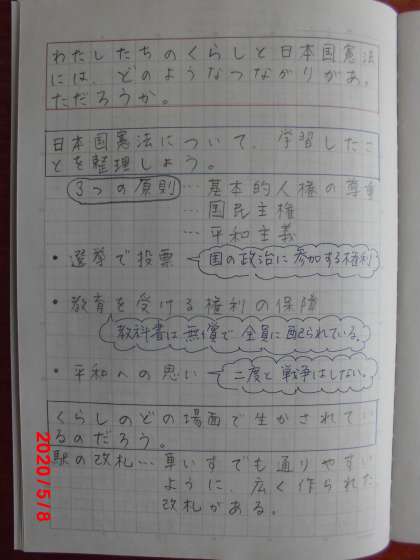 わたしたちのくらしと日本国憲法
には、どのようなつながりがあっ
ただろうか。
日本国憲法について、学習したこ
とを整理しよう。
3つの原則…基本的人権の尊重
…国民主権
…平和主義
・選挙で投票 国の政治に参加する権利
・教育を受ける権利の保障
教科書は無償で全員に配られている。
・平和への思い 二度と戦争はしない。
くらしのどの場面で生かされてい
るのだろう。
駅の改札…車いすでも通りやすい
ように、広く作られた
改札がある。
2020/5/8